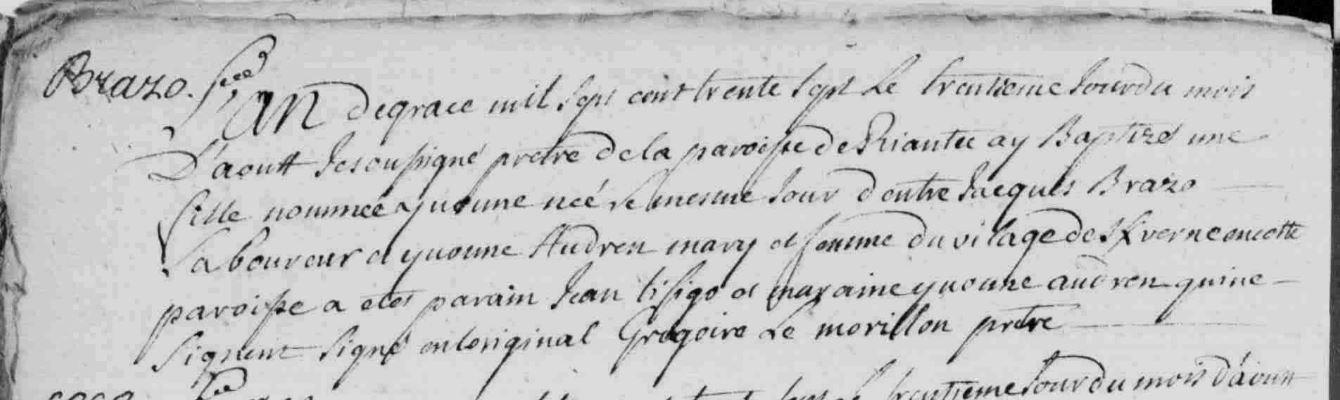 Brazo. fée
L'AN de grace mil sept cent trente sept Le trentieme Jour du mois
D'aoutt Je soussigné pretre de la paroisse de Riantec ay Baptizé une
fille nommée yvonne neé le mesme Jour d'entre Jacques Brazo
Laboureur et yvonne Audren mary et femme du vilage de en cette
paroisse a etés parain Jean et maraine yvonne audren qui ne
signent signé en loriginal Gregoire Le morillon pretre
sept Le trentieme Jour du mois d'aoutt